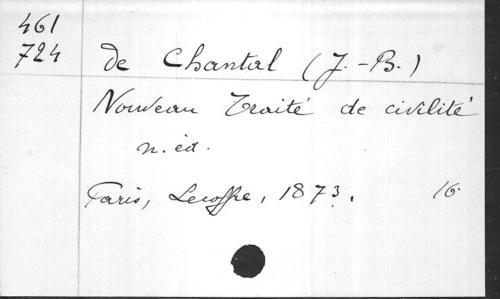 461
724 de Chantal (J.-B.)
Nouveau Traité de civilité
n. éd.
Paris, Lecoffre, 1873. 16